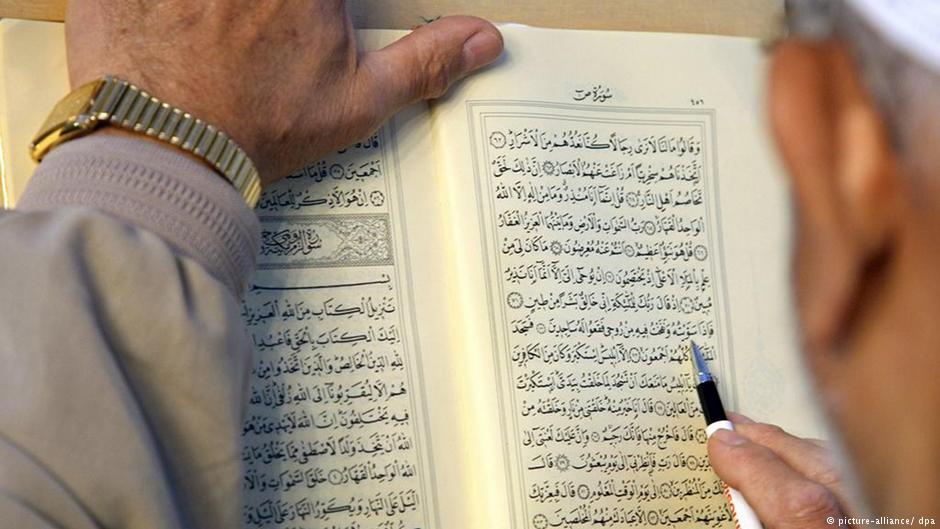 سورة ص ٤٥٦
وَقَالُوا مَا لَنَا لَا نَرَى رِجَالًا كُنَّا نَعُدُّهُمْ مِنَ الْأَشْرَارِ ٦٢
أَتَّخَذْنَاهُمْ سِخْرِيًّا أَمْ زَاغَتْ عَنْهُمُ الْأَبْصَارُ ٦٣ إِنَّ ذَلِكَ لَحَقٌّ
تَخَاصُمُ أَهْلِ النَّارِ ٦٤ قُلْ إِنَّمَا أَنَا مُنْذِرٌ وَمَا مِنْ إِلَهٍ إِلَّا اللَّهُ
الْوَاحِدُ الْقَهَّارُ ٦٥ رَبُّ السَّمَوَاتِ وَالْأَرْضِ وَمَا بَيْنَهُمَا الْعَزِيزُ الْغَفَّارُ
٦٦ قُلْ هُوَ نَبَؤٌا عَظِيمٌ ٦٧ أَنْتُمْ عَنْهُ مُعْرِضُونَ ٦٨ مَا كَانَ لِيَ مِنْ
عِلْمٍ بِالْمَلَإِ الْأَعْلَى إِذْ يَخْتَصِمُونَ ٦٩ إِنْ يُوحَى إِلَيَّ إِلَّا أَنَّمَا أَنَا نَذِيرٌ
مُبِينٌ ٧٠ إِذْ قَالَ رَبُّكَ لِلْمَلَئِكَةِ إِنِّي خَالِقٌ بَشَرًا مِنْ طِينٍ ٧١
فَإِذَا سَوَّيْتُهُ وَنَفَخْتُ فِيهِ مِنْ رُوحِي فَقَعُوا لَهُ سَاجِدِينَ ٧٢ فَسَجَدَ
كُلُّهُمْ أَجْمَعُونَ ٧٣ إِلَّا إِبْلِيسَ اسْتَكْبَرَ وَكَانَ مِنَ الْكَافِرِينَ
إِبْلِيسُ مَا مَنَعَكَ أَنْ تَسْجُدَ لِمَا خَلَقْتُ بِيَدَيَّ أَسْتَكْبَرْتَ
مِنَ الْعَالِينَ ٧٥ قَالَ أَنَا خَيْرٌ مِنْهُ خَلَقْتَنِي مِنْ نَارٍ وَخَلَقْتَهُ مِنْ
قَالَ فَاخْرُجْ مِنْهَا فَإِنَّكَ رَجِيمٌ ٧٧ وَإِنَّ عَلَيْكَ لَعْنَتِي إِلَى
قَالَ رَبِّ فَأَنْظِرْنِي إِلَى يَوْمِ يُبْعَثُونَ ٧٩ قَالَ
مِنَ الْمُنْظَرِينَ ٨٠ إِلَى يَوْمِ الْوَقْتِ الْمَعْلُومِ ٨١ قَالَ فَبِعِزَّتِكَ
لَأُغْوِيَنَّهُمْ أَجْمَعِينَ ٨٢ إِلَّا عِبَادَكَ مِنْهُمُ الْمُخْلَصِينَ
قَالَ
أَجْمَعِينَ ٨٥ قُلْ مَا
إِنْ هُوَ إِلَّا ذِكْرٌ لِلْعَالَمِينَ
سورة الزمر مكية
تَنْزِيلُ الْكِتَابِ مِنَ اللَّهِ الْعَزِيزِ
إِلَيْكَ الْكِتَابَ بِالْحَقِّ فَاعْبُدِ
لِلَّهِ الدِّينُ الْخَالِصُ وَالَّذِينَ اتَّخَذُوا مِنْ
هُمْ إِلَّا لِيُقَرِّبُونَا إِلَى اللَّهِ زُلْفَى إِنَّ اللَّهَ
فِيهِ يَخْتَلِفُونَ إِنَّ اللَّهَ لَا يَهْدِي مَنْ هُوَ
اللَّهُ أَنْ يَتَّخِذَ وَلَدًا لَاصْطَفَى مِمَّا يَخْلُقُ
اللَّهُ الْوَاحِدُ الْقَهَّارُ ٤ خَلَقَ السَّمَوَاتِ
اللَّيْلَ عَلَى النَّهَارِ وَيُكَوِّرُ النَّهَارَ
© picture-alliance/ dpa